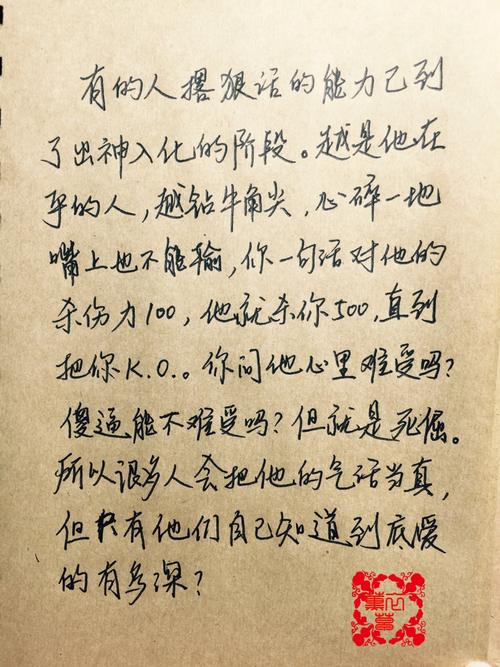 有的人撂狠话的能力已到
了出神入化的阶段。越是他在
乎的人，越钻牛角尖，心碎一地
嘴上也不能输，你一句话对他的
杀伤力100，他就杀你500，直到
把你K.O.。你问他心里难受吗？
傻逼能不难受吗？但就是死倔。
所以很多人会把他的气话当真，
但只有他们自己知道到底爱
的有多深？